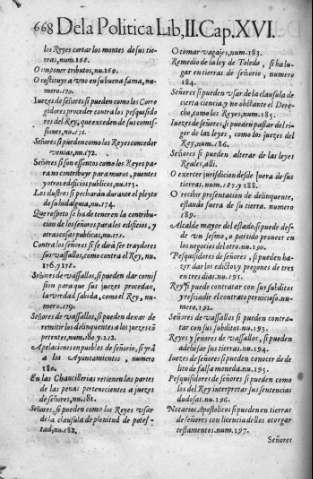 668 De la Politica Lib, II. Cap. XVI.
los Reyes cortar los montes de sus tierras, num.168.
O imponer tributos, nu.169.
O restituyr a vno en su buena fama, numero.170.
Juezes de señores si pueden como los Corregidores proceder contra los pesquisidores del Rey, que exceden de sus comissiones, nu.171.
Señores si pueden como los Reyes conceder venias, nu.172.
Señores si son essentos como los Reyes para no contribuyr para muros, puentes y otros edificios publicos, nu.173.
Los dudosos si pecharán durante el pleyto de su hidalguia, nu.174.
Que respeto se ha de tener en la contribucion de los señores para los edificios, y otras cosas publicas, nu.175.
Contra los señores si se dirá ser traydores sus vassallos, como contra el Rey, nu. 176. y 212.
Señores de vassallos, si pueden dar comissiõn para que sus juezes procedan, la verdad sabida, como el Rey, numero.179.
Señores de vassallos, si pueden dexar de remitir los delinquentes a los juezes cõpetentes, num.180. y.212.
Apelaciones en pueblos de señorio, si yrã a los Ayuntamientos, numero 180.
En las Chancillerias retienen las partes de las penas pertenecientes a juezes de señores, nu.181.
Señores, si pueden como los Reyes vsar de la clausula de plenitud de potestad, nu.182.
O tomar vagajes, num.183.
Remedio de la ley de Toledo, si ha lugar en tierras de señorio, numero 184.
Señores si pueden vsar de la clausula de cierta ciencia, y no obstante el Derecho, como los Reyes, num.185.
Juezes de señores si pueden passar del rigor de las leyes, como los juezes del Rey, num.186.
Señores si pueden alterar de las leyes Reales, alli.
O exercer jurisdicion desde fuera de sus tierras, num.187. y 188.
O recebir presentacion de delinquente, estando fuera de su tierra. numero 189.
Alcalde mayor del estado, si puede desde vn lesmo, o partido proueer en los negocios del otro, nu.190.
Pesquisidores de señores, si pueden hazer dar los edictos y pregones de tres en tres dias, nu.191.
Rey si puede contratar con sus subditos y rescindir el contrato pernicioso, numero.192.
Señores de vassallos si pueden contratar con sus subditos, nu.193.
Reyes y señores de vassallos, si pueden adelesar sus tierras, nu.194.
Juezes de señores si pueden conocer de delito de falsa moneda, nu.195.
Pesquisidores de señores si pueden como los del Rey interpretar sus sentencias dudosas, nu.196.
Notarios Apostolicos si pueden en tierras de señores con licencia dellos otorgar testamentos. num.197.
Señores